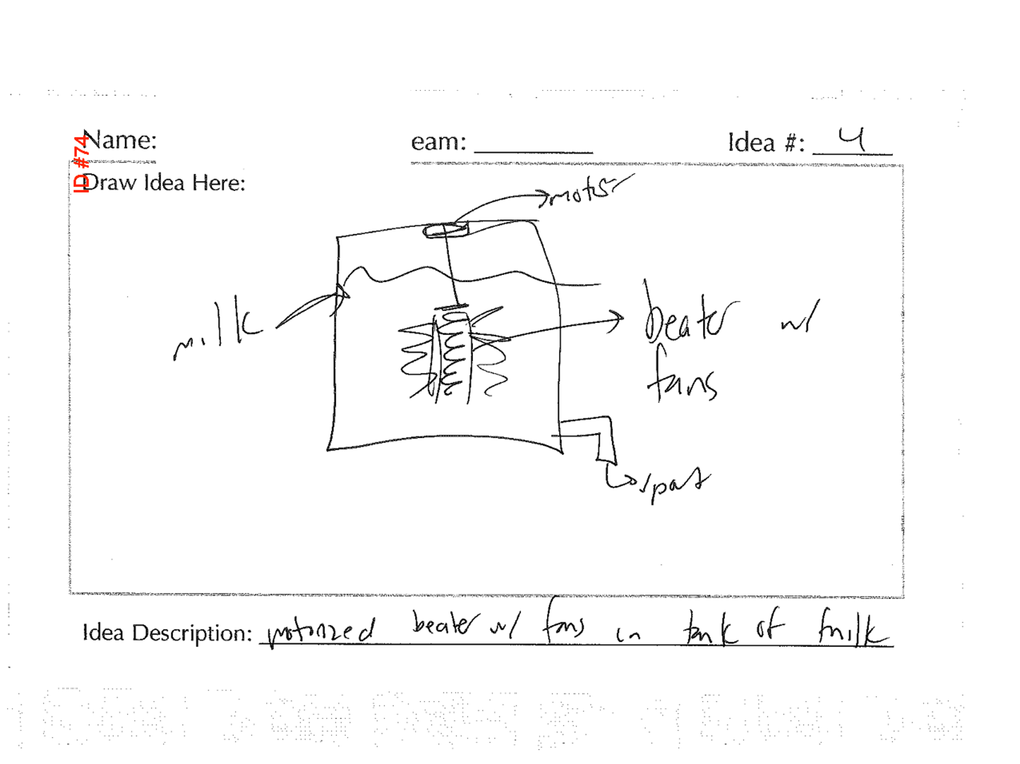 ID #74
Name:
eam:
Idea #: 4
Draw Idea Here:
motor
milk
beater w/
fans
spout
Idea Description: motorized beater w/ fans in tank of milk